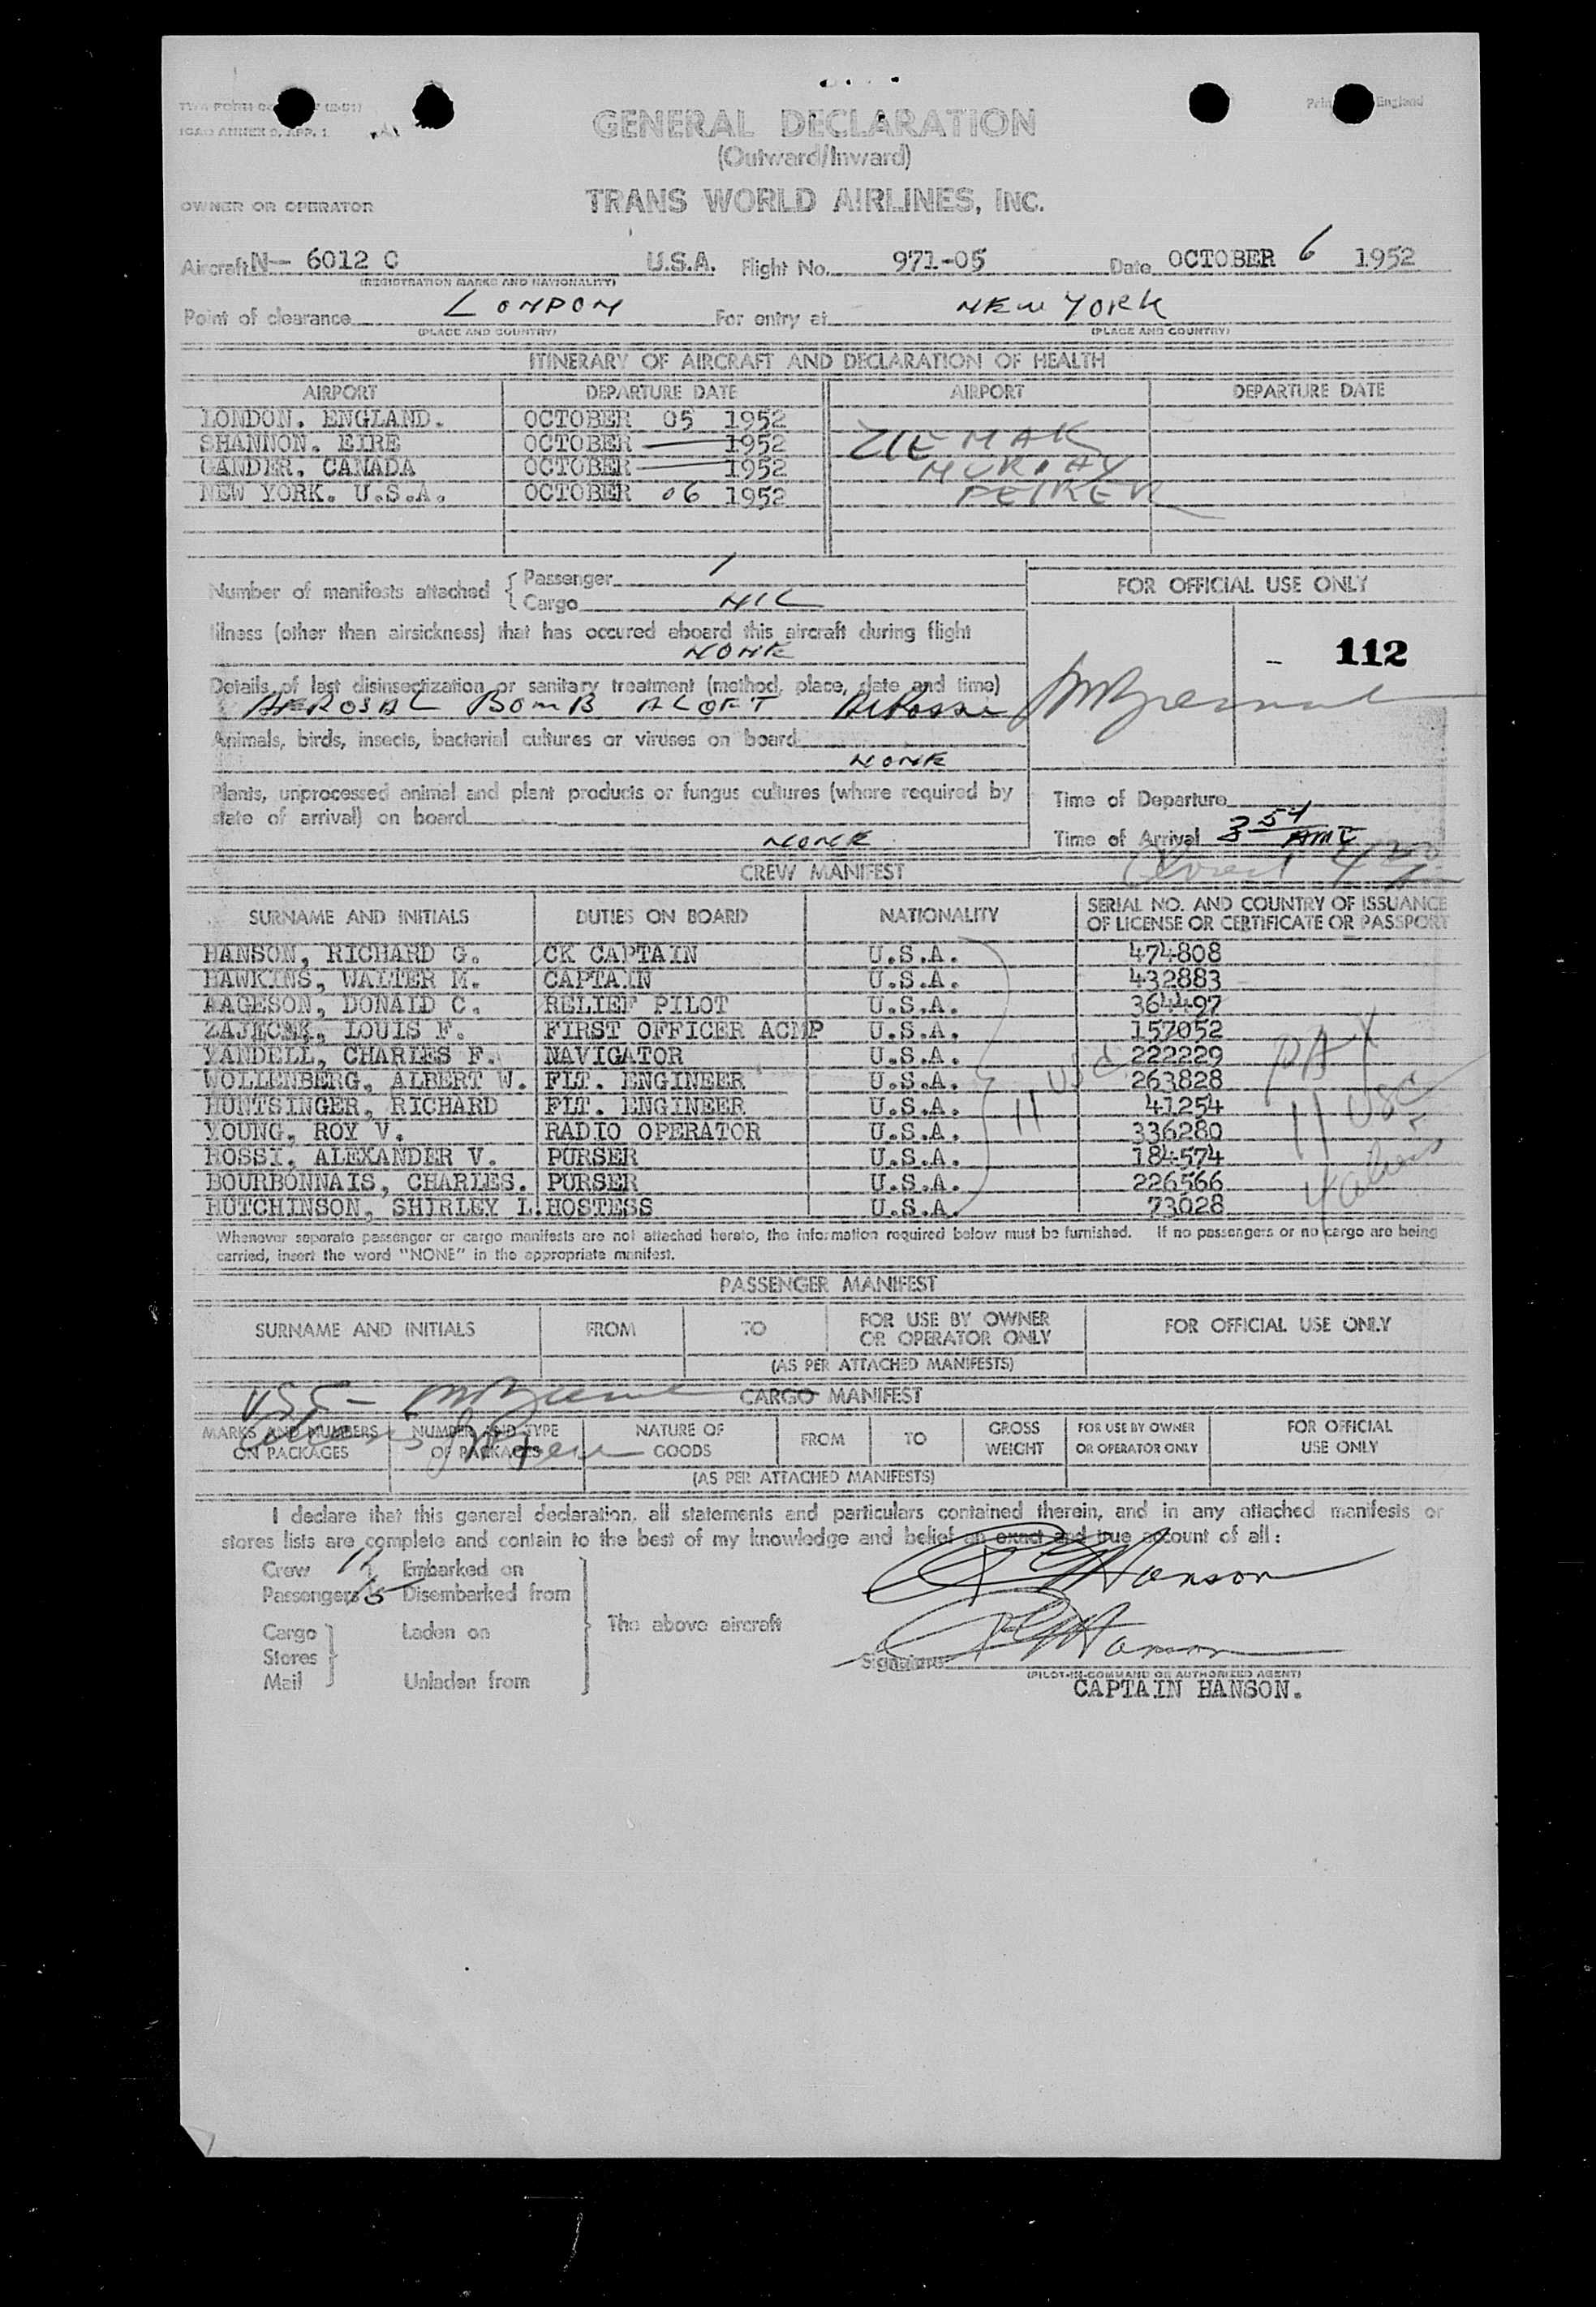 GENERAL DECLARATION
(Outward/Inward)
OWNER OR OPERATOR TRANS WORLD AIRLINES, INC.
Aircraft N— 6012 C U.S.A. Flight No. 971-05 Date OCTOBER 6 1952
(REGISTRATION MARKS AND NATIONALITY)
Point of clearance LONDON For entry at NEW YORK
(PLACE AND COUNTRY) (PLACE AND COUNTRY)
ITINERARY OF AIRCRAFT AND DECLARATION OF HEALTH
AIRPORT DEPARTURE DATE AIRPORT DEPARTURE DATE
LONDON. ENGLAND. OCTOBER 05 1952
SHANNON. EIRE OCTOBER — 1952 ZIEMAK
GANDER. CANADA OCTOBER — 1952 MURRAY
NEW YORK. U.S.A. OCTOBER 06 1952
Number of manifests attached { Passenger 1
Cargo NIL
FOR OFFICIAL USE ONLY
Illness (other than airsickness) that has occured aboard this aircraft during flight
NONE
- 112
Details of last disinsectization or sanitary treatment (method, place, date and time)
AEROSAL BOMB ALOFT
Animals, birds, insects, bacterial cultures or viruses on board
NONE
Plants, unprocessed animal and plant products or fungus cultures (where required by
state of arrival) on board
NONE
Time of Departure
Time of Arrival 3 54
CREW MANIFEST
SURNAME AND INITIALS DUTIES ON BOARD NATIONALITY SERIAL NO. AND COUNTRY OF ISSUANCE
OF LICENSE OR CERTIFICATE OR PASSPORT
HANSON, RICHARD G. CK CAPTAIN U.S.A. 474808
HAWKINS, WALTER M. CAPTAIN U.S.A. 432883
AAGESON, DONALD C. RELIEF PILOT U.S.A. 364497
ZAJECEK, LOUIS F. FIRST OFFICER ACMP U.S.A. 157052
YANDELL, CHARLES F. NAVIGATOR U.S.A. 222229
WOLLENBERG, ALBERT W. FLT. ENGINEER U.S.A. 263828
HUNTSINGER, RICHARD FLT. ENGINEER U.S.A. 41254
YOUNG, ROY V. RADIO OPERATOR U.S.A. 336280
ROSSI, ALEXANDER V. PURSER U.S.A. 184574
BOURBONNAIS, CHARLES. PURSER U.S.A. 226566
HUTCHINSON, SHIRLEY L. HOSTESS U.S.A. 73028
11 USC
PAX
11 USC
4 aliens
Whenever separate passenger or cargo manifests are not attached hereto, the information required below must be furnished. If no passengers or no cargo are being
carried, insert the word "NONE" in the appropriate manifest.
PASSENGER MANIFEST
SURNAME AND INITIALS FROM TO FOR USE BY OWNER
OR OPERATOR ONLY FOR OFFICIAL USE ONLY
(AS PER ATTACHED MANIFESTS)
USC - CARGO MANIFEST
MARKS AND NUMBERS
ON PACKAGES NUMBER AND TYPE
OF PACKAGES NATURE OF
GOODS FROM TO GROSS
WEIGHT FOR USE BY OWNER
OR OPERATOR ONLY FOR OFFICIAL
USE ONLY
(AS PER ATTACHED MANIFESTS)
I declare that this general declaration, all statements and particulars contained therein, and in any attached manifests or
stores lists are complete and contain to the best of my knowledge and belief an exact and true account of all:
Crew 11 Embarked on
Passengers 15 Disembarked from
Cargo Laden on
Stores
Mail Unladen from
The above aircraft
RG Hanson
RG Hanson
Signature
(PILOT-IN-COMMAND OR AUTHORIZED AGENT)
CAPTAIN HANSON.